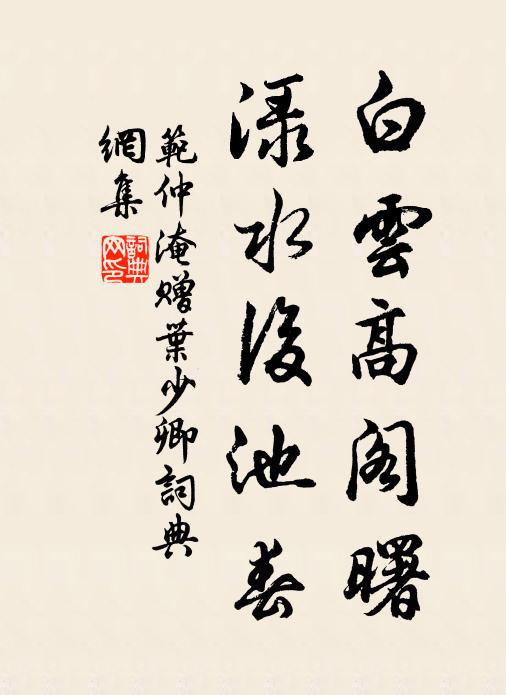 白雲高阁曙
渌水後池春
範仲淹赠葉少卿詞典
網集
詞典网印